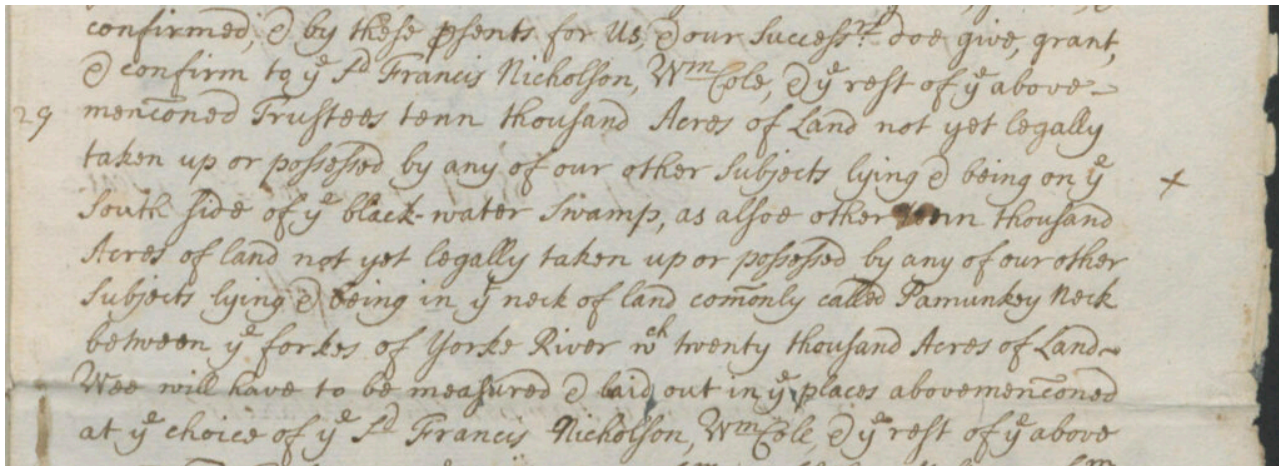 confirmed, & by these psents for Us, & our Success.rs doe give, grant,
& confirm to ye Sd Francis Nicholson, Wm Cole, & ye rest of ye above-
29 menconed Trustees tenn thousand Acres of Land not yet legally
taken up or possessed by any of our other Subjects lying & being on ye +
South side of ye black-water Swamp, as alsoe other tenn thousand
Acres of land not yet legally taken up or possessed by any of our other
Subjects lying & being in ye neck of land comonly called Pamunkey Neck
between ye forkes of Yorke River wch twenty thousand Acres of Land
Wee will have to be measured & laid out in ye places abovemenconed
at ye choice of ye Sd Francis Nicholson, Wm Cole, & ye rest of ye above